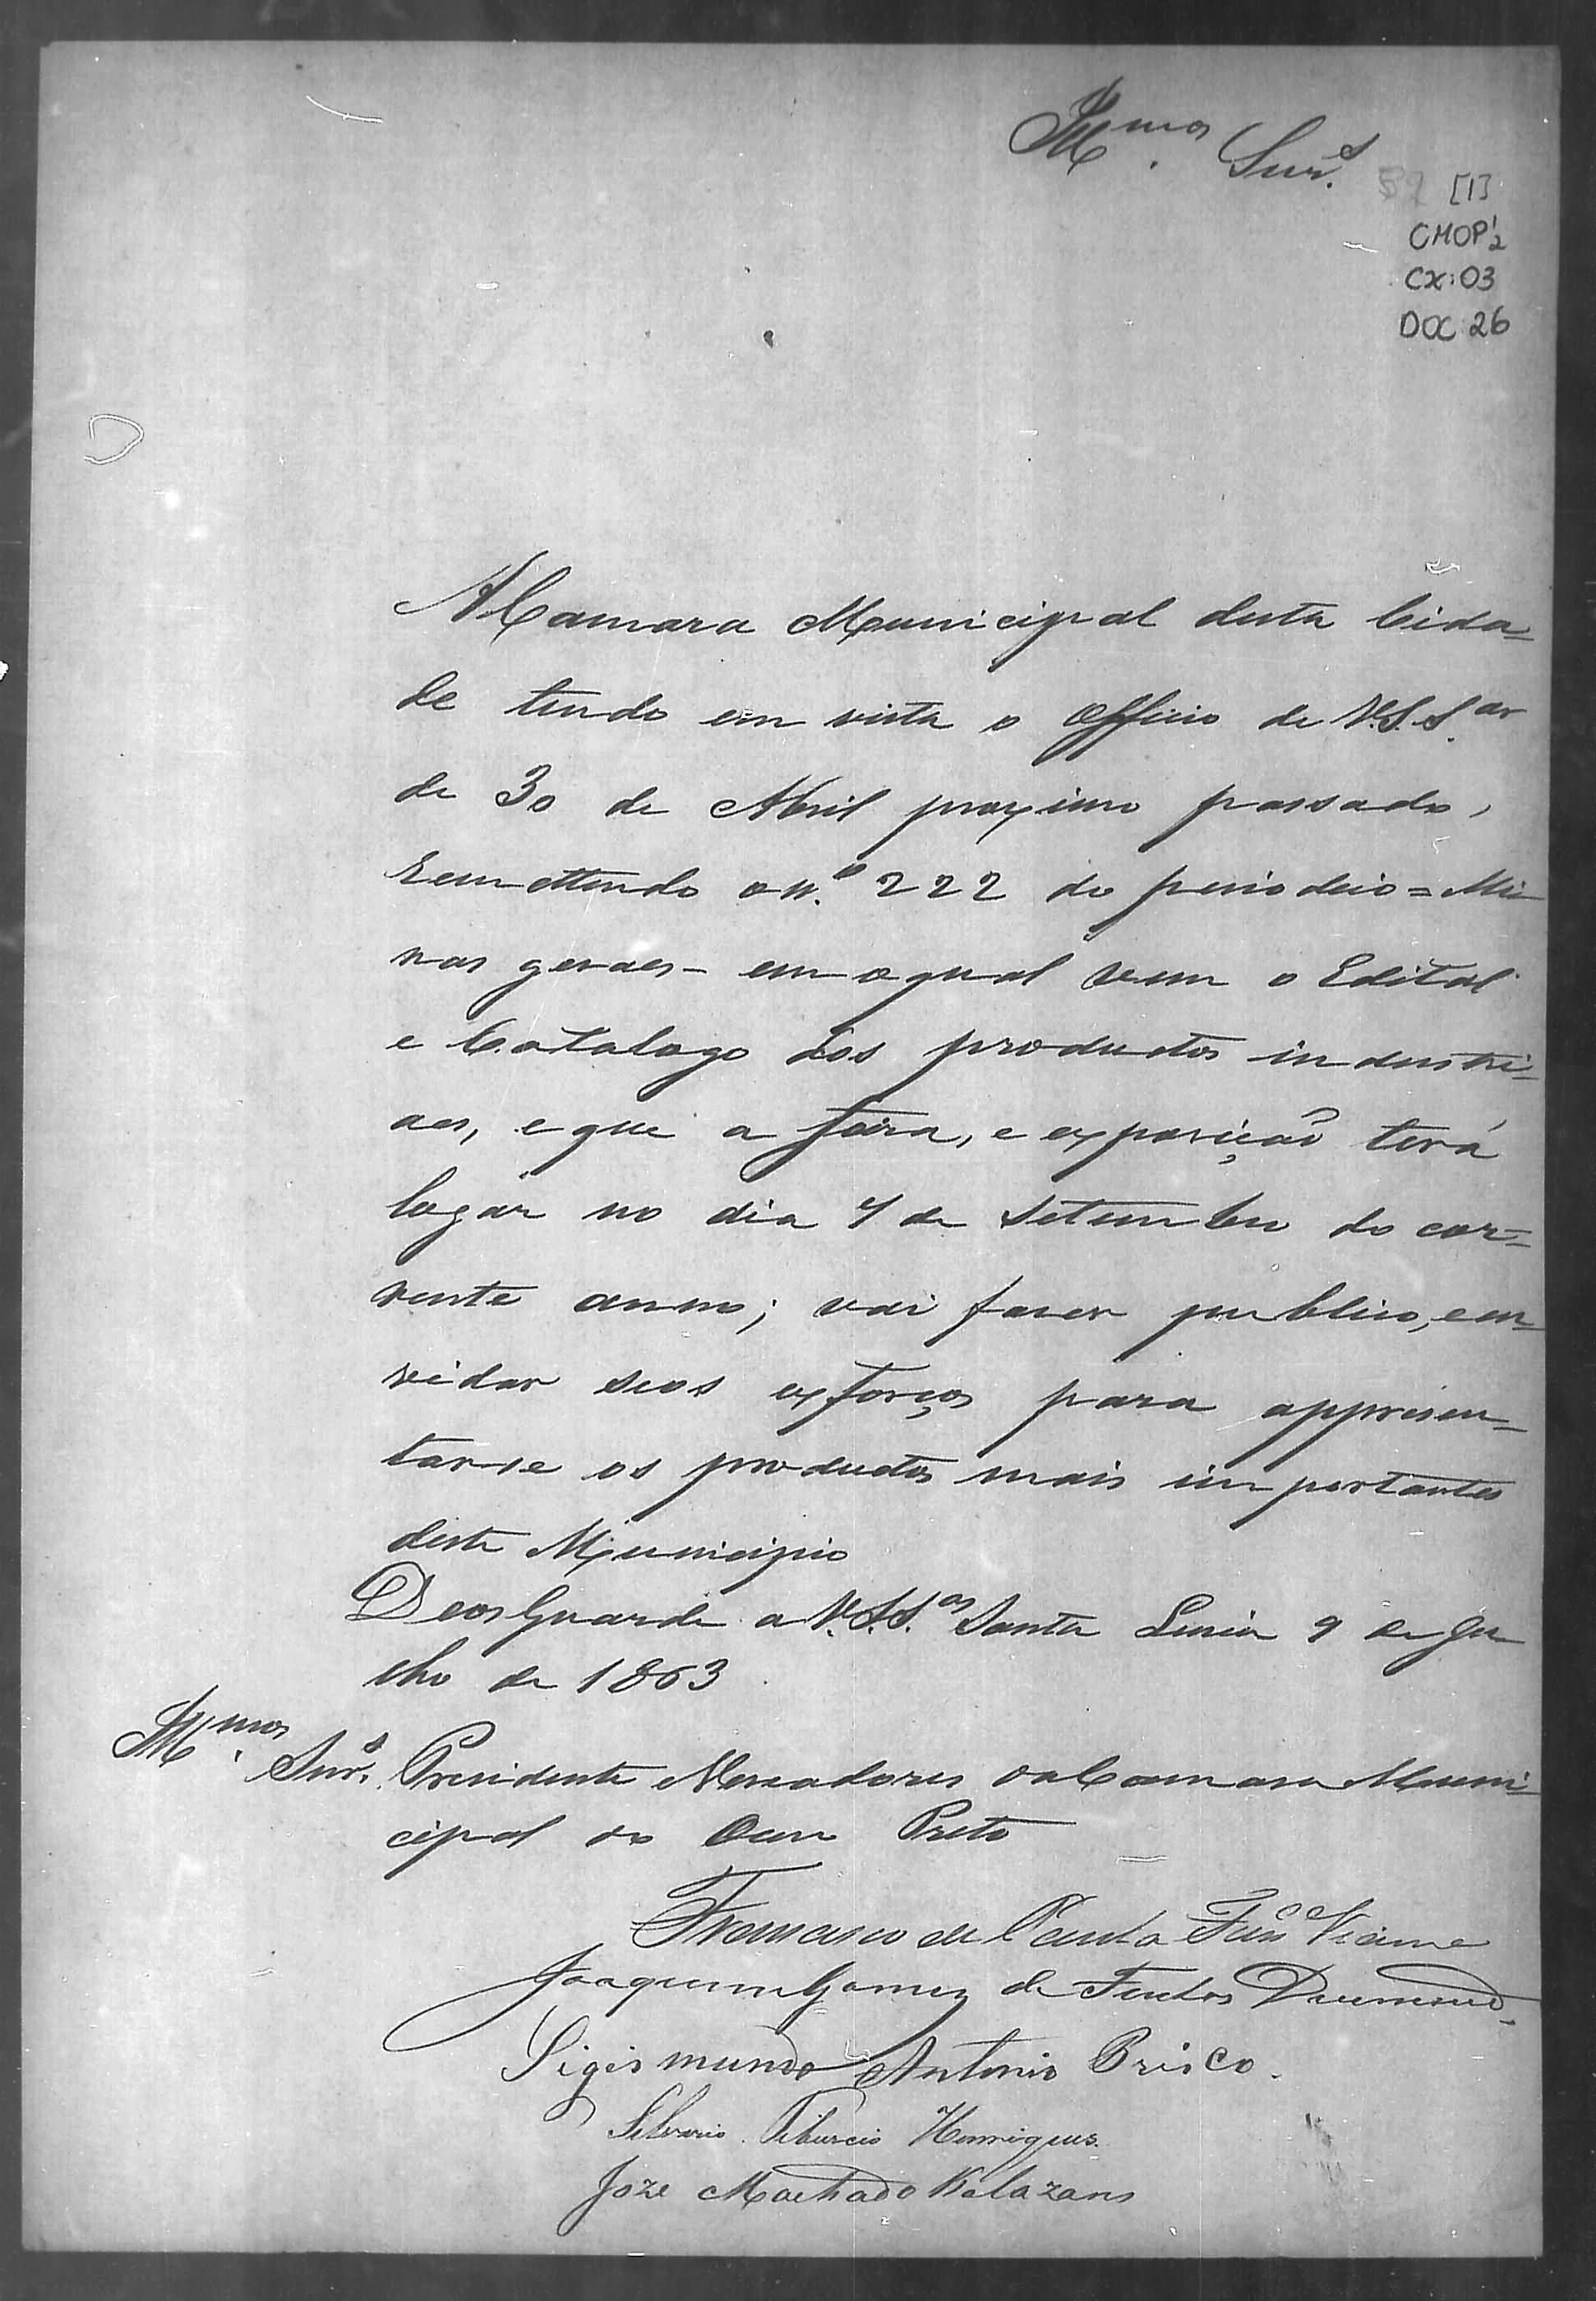 Illmos. Snrs.
[1]
CMOP 1/2
CX: 03
DOC 26
A Camara Municipal desta Cida=
de tendo em vista o Officio de V.S.Sas.
de 30 de Abril proximo passado,
remettendo o n.º 222 do periodico = Mi
nas geraes - em o qual vem o Edital
e Catalogo dos productos industri=
aes, e que a feira, e exposição terá
lugar no dia 7 de Setembro do cor=
rente anno; vai fazer publico, en=
vidar seos exforços para appresen=
tar-se os productos mais importantes
deste Municipio
Deos Guarde a V.S.Sas Santa Luzia 9 de Ju
nho de 1863
Illmos. Snrs. Presidente e Vereadores da Camara Muni=
cipal do Ouro Preto
Francisco de Paula Vianna
Joaquim Gomez de Freitas Drumond.
Sigismundo Antonio Brisco.
Silverio Tiburcio Henriques.
Joze Machado Kalazans